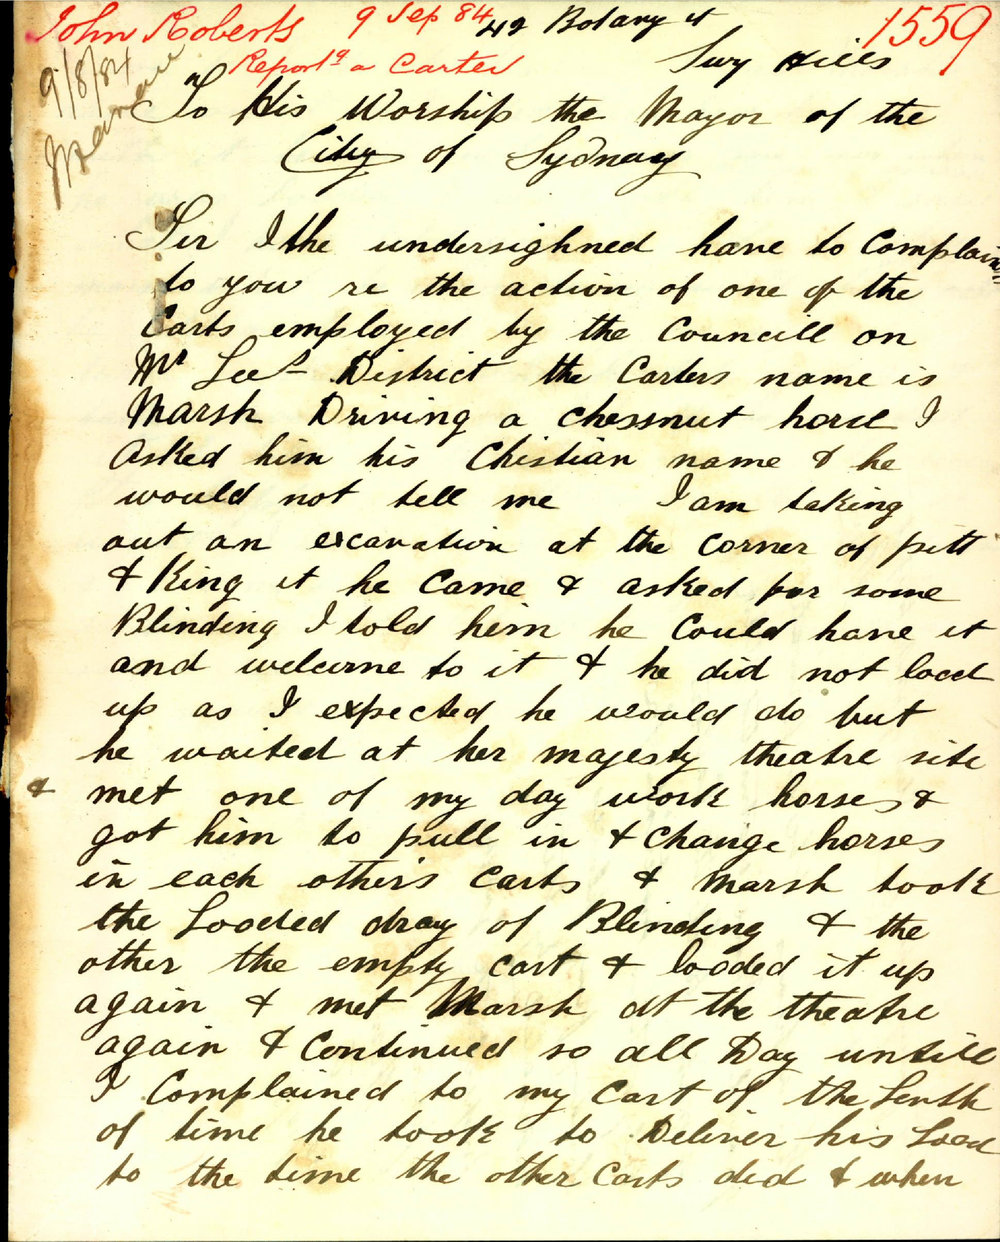 John Roberts 9 Sep 84 42 Botany st 1559
Reportg a Carter Surry Hills
9/8/84
To His Worship the Mayor of the
City of Sydney
Sir I the undersighned have to Complain
to you re the action of one of the
Carts employed by the Councill on
Mr Lees District the Carters name is
Marsh Driving a chessnut horse I
asked him his Chistian name & he
would not tell me I am taking
out an excavation at the corner of pitt
& King st he came & asked for some
Blinding I told him he could have it
and welcome to it & he did not load
up as I expected he would do but
he waited at her majesty theatre site
& met one of my day work horses &
got him to pull in & change horses
in each others carts & Marsh took
the Looded dray of Blinding & the
other the empty cart & looded it up
again & met Marsh at the theatre
again & Continued so all Day untill
I Complained to my Cart of the Lenth
of time he took to Deliver his Load
to the time the other Carts did & when